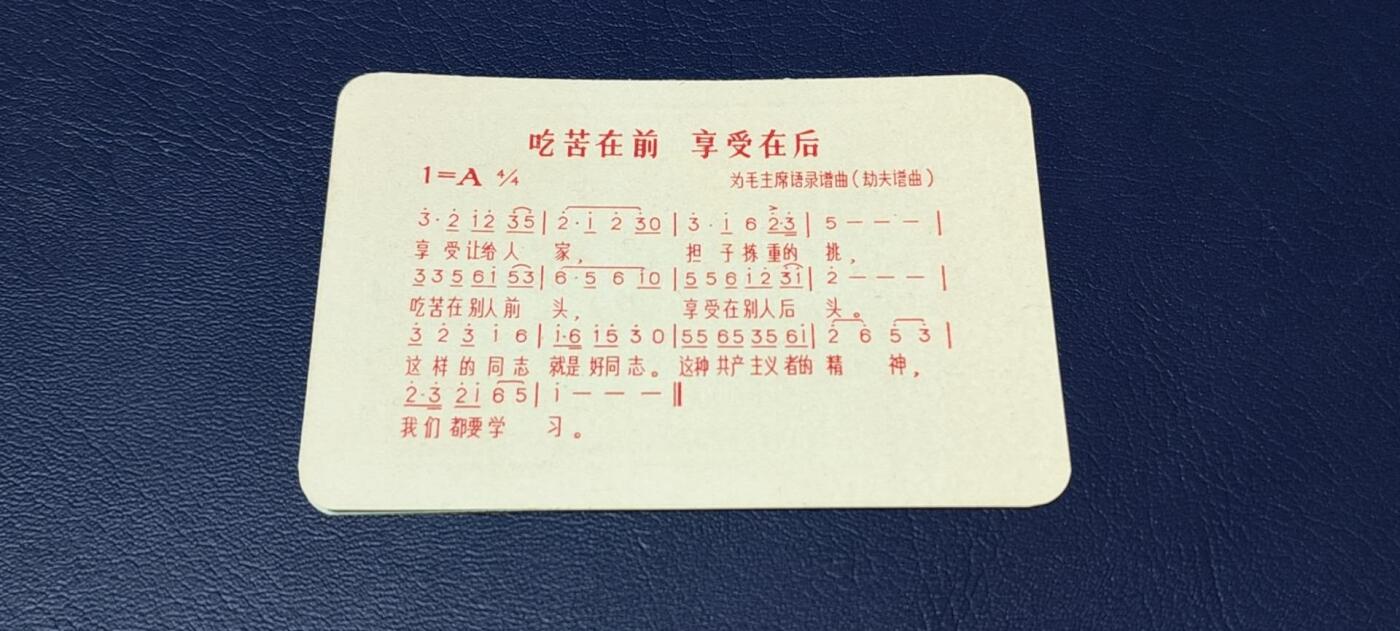 吃苦在前 享受在后
1=A 4/4 为毛主席语录谱曲(劫夫谱曲)
3̇·2̇ 1̇2̇ 3̇5̇ | 2̇·1̇ 2̇ 3̇0 | 3̇·1̇ 6 2̇·3̇ | 5 — — — |
享受让给人 家, 担子拣重的 挑,
3 3 5 6 1̇ 5 3 | 6·5 6 1̇0 | 5 5 6 1̇ 2̇ 3̇1̇ | 2̇ — — — |
吃苦在别人前 头, 享受在别人后 头。
3̇ 2̇ 3̇ 1̇ 6 | 1̇·6 1̇5 3̇ 0 | 55 65 35 61̇ | 2̇ 6 5̇ 3̇ |
这样的同志 就是好同志。 这种共产主义者的 精 神,
2̇·3̇ 2̇1̇ 6 5 | 1̇ — — — ‖
我们都要学 习。